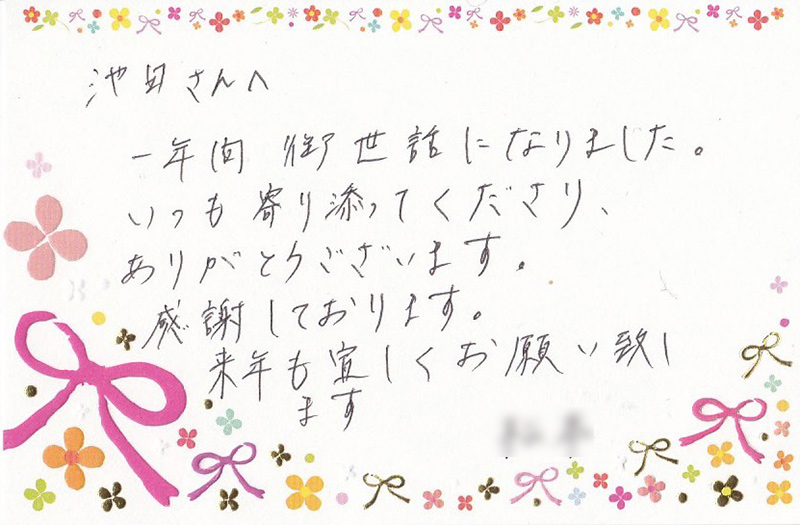 池田さんへ
一年間 御世話になりました。
いつも寄り添ってくださり、
ありがとうございます。
感謝しております。
来年も宜しくお願い致し
ます